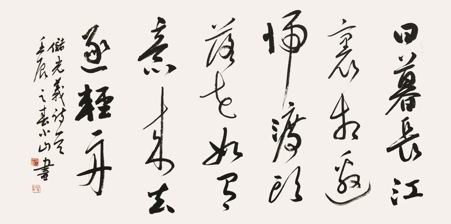 日暮長江
裏相邀
歸渡頭
落花如有
意來去
逐輕舟
儲光羲詩一首
壬辰之春小山書